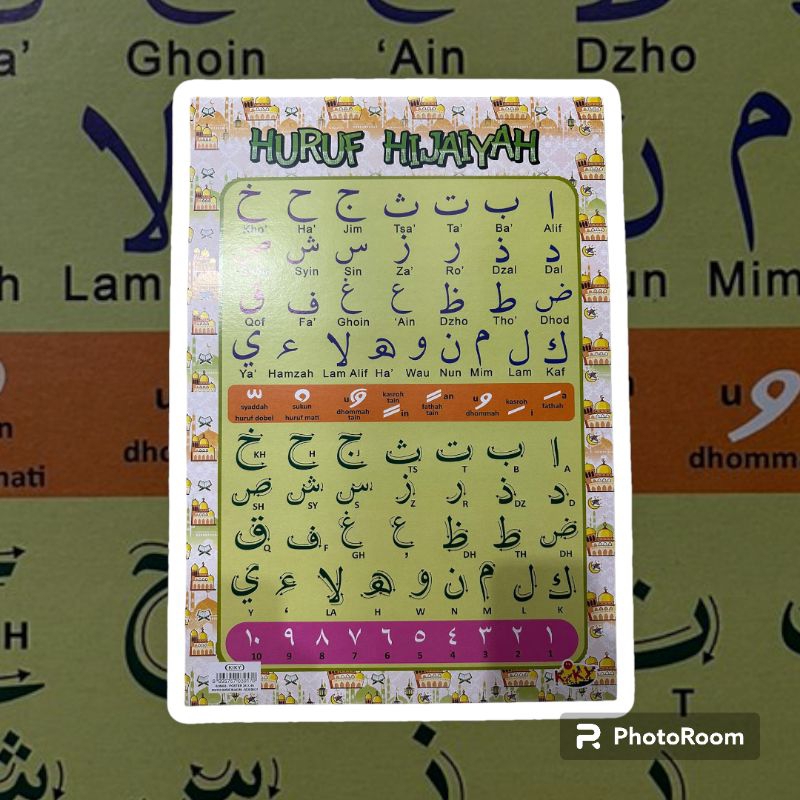 Ghoin 'Ain Dzho
HURUF HIJAIYAH
ا ب ت ث ج ح خ
Kho' Ha' Jim Tsa' Ta' Ba' Alif
د ذ ر ز س ش ص
Syin Sin Za' Ro' Dzal Dal
ض ط ظ ع غ ف ق
Qof Fa' Ghoin 'Ain Dzho Tho' Dhod
ك ل م ن و ه لا ء ي
Ya' Hamzah Lam Alif Ha' Wau Nun Mim Lam Kaf
syaddah sukun u dhommah tain kasroh tain in an fathah tain u dhommah kasroh i a fathah
huruf dobel huruf mati
ا ب ت ث ج ح خ
KH H J TS T B A
د ذ ر ز س ش ص
SH SY S Z R DZ D
ض ط ظ ع غ ف ق
Q F GH ' DH TH DH
ك ل م ن و ه لا ء ي
Y ' LA H W N M L K
١ ٢ ٣ ٤ ٥ ٦ ٧ ٨ ٩ ١٠
10 9 8 7 6 5 4 3 2 1
KIKY
KIKY
لا م
Lam Mim
u
dhomm
ن
T
PhotoRoom